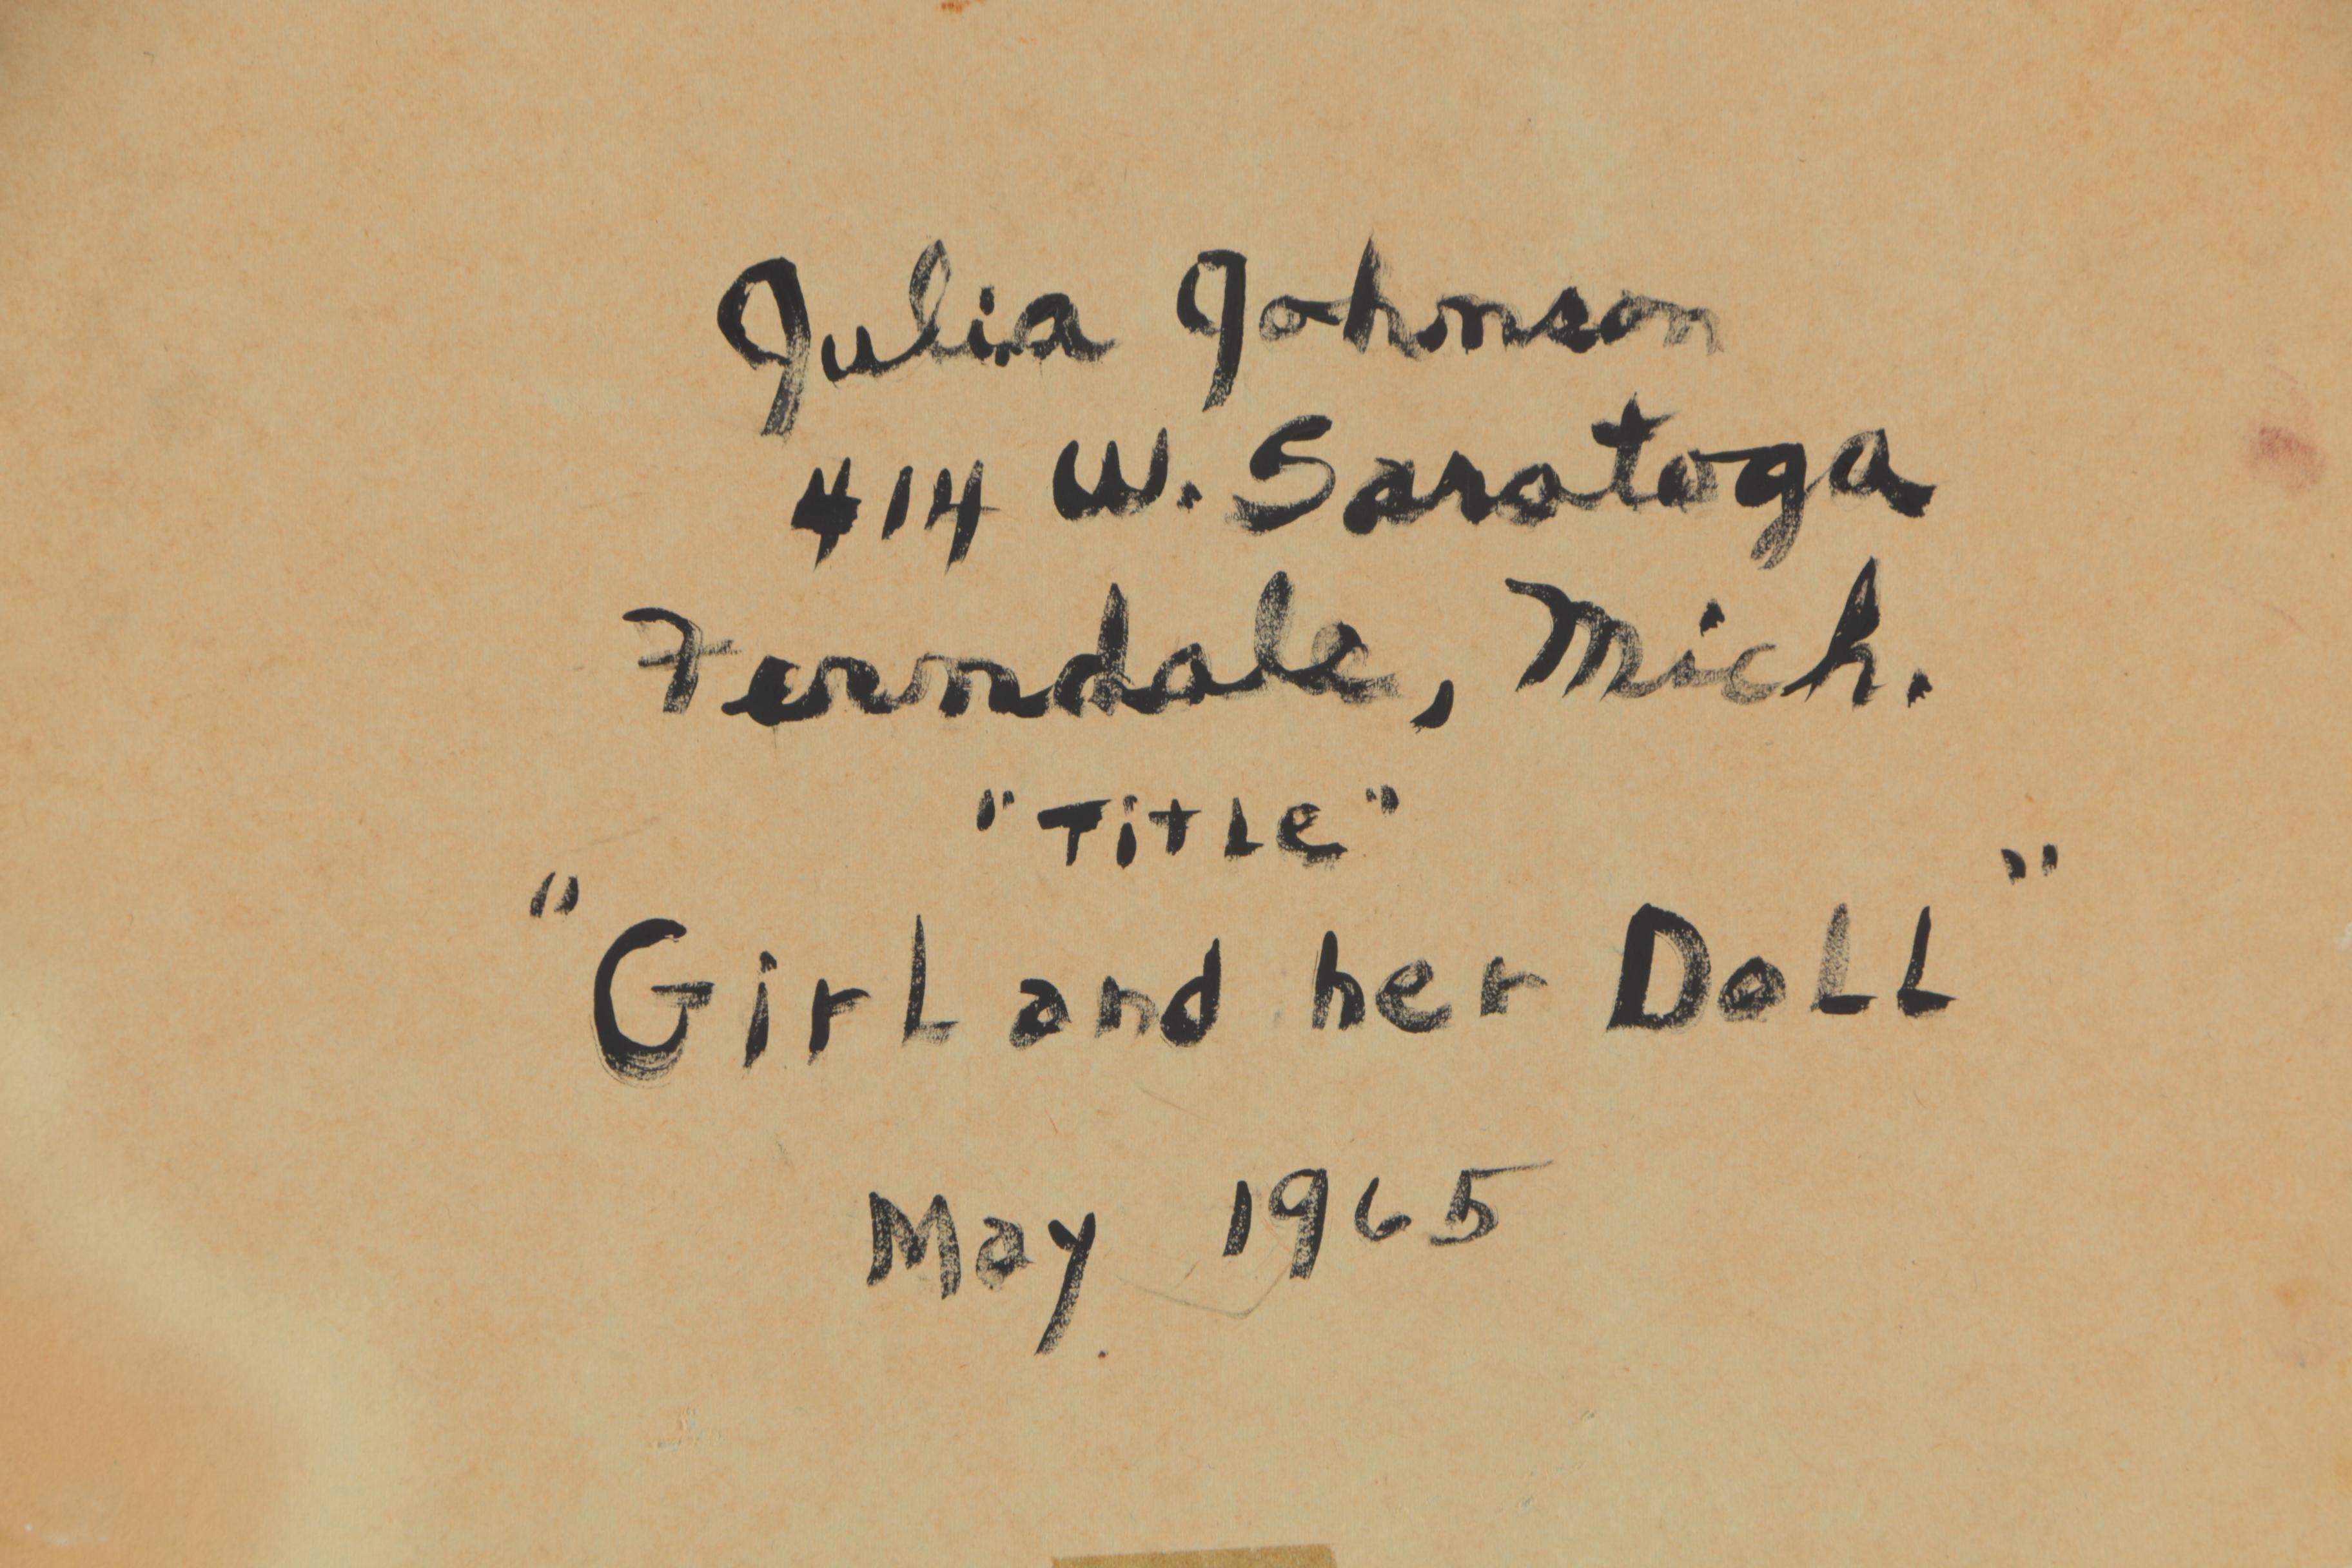 Julia Johnson
414 W. Saratoga
Ferndale, Mich.
"TiTLe"
"GirL and her DoLL"
May 1965